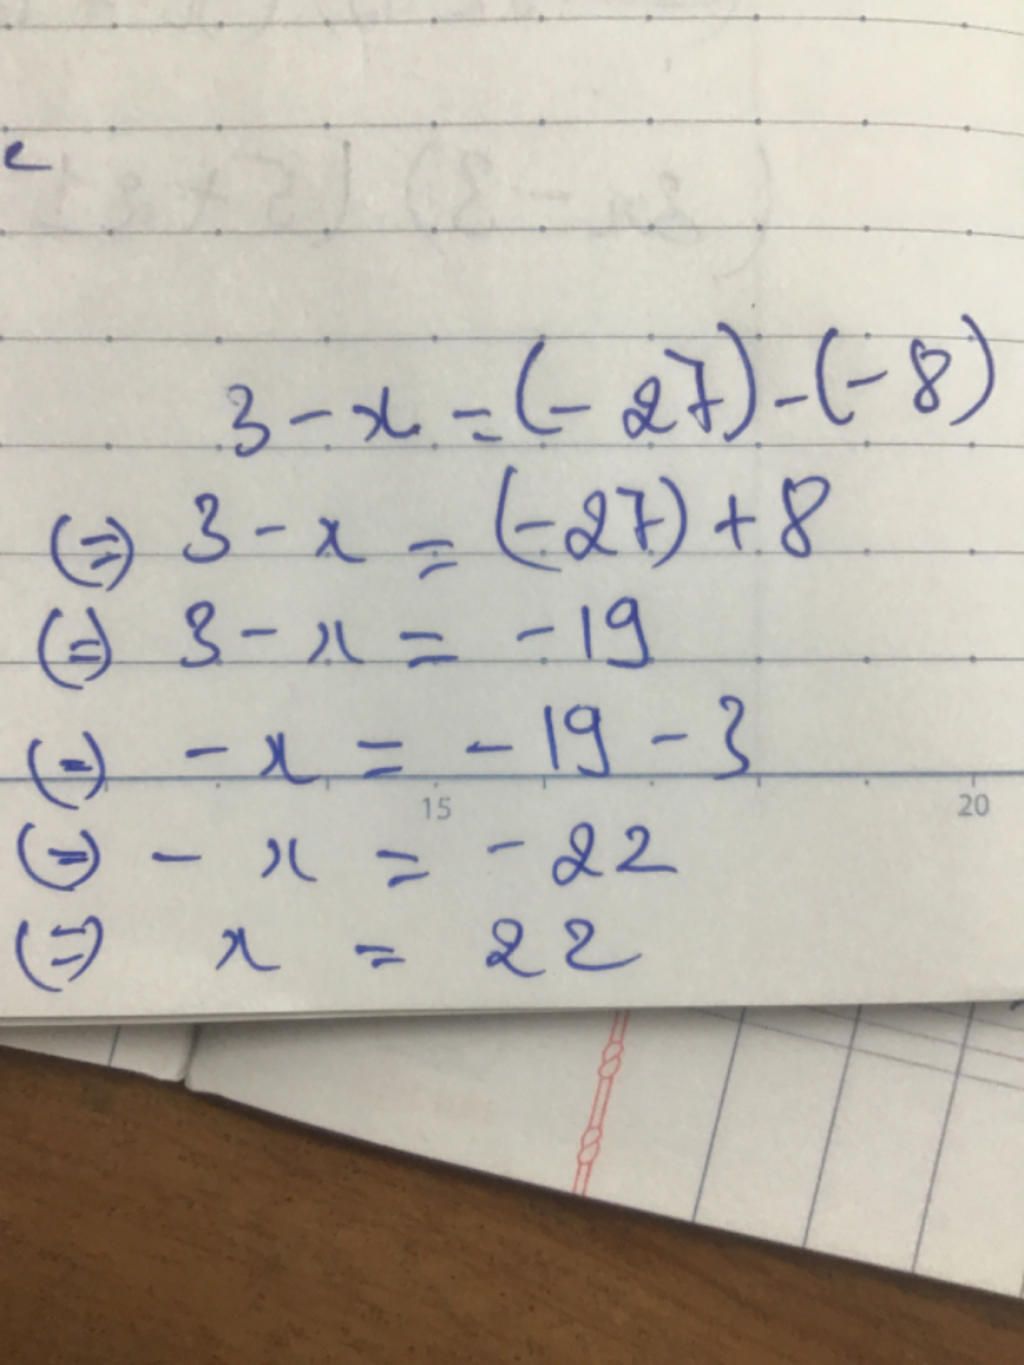 e
3 - x = (- 27) - (- 8)
(=) 3 - x = (-27) + 8
(=) 3 - x = -19
(=) - x = - 19 - 3
15 20
(=) - x = - 22
(=) x = 22